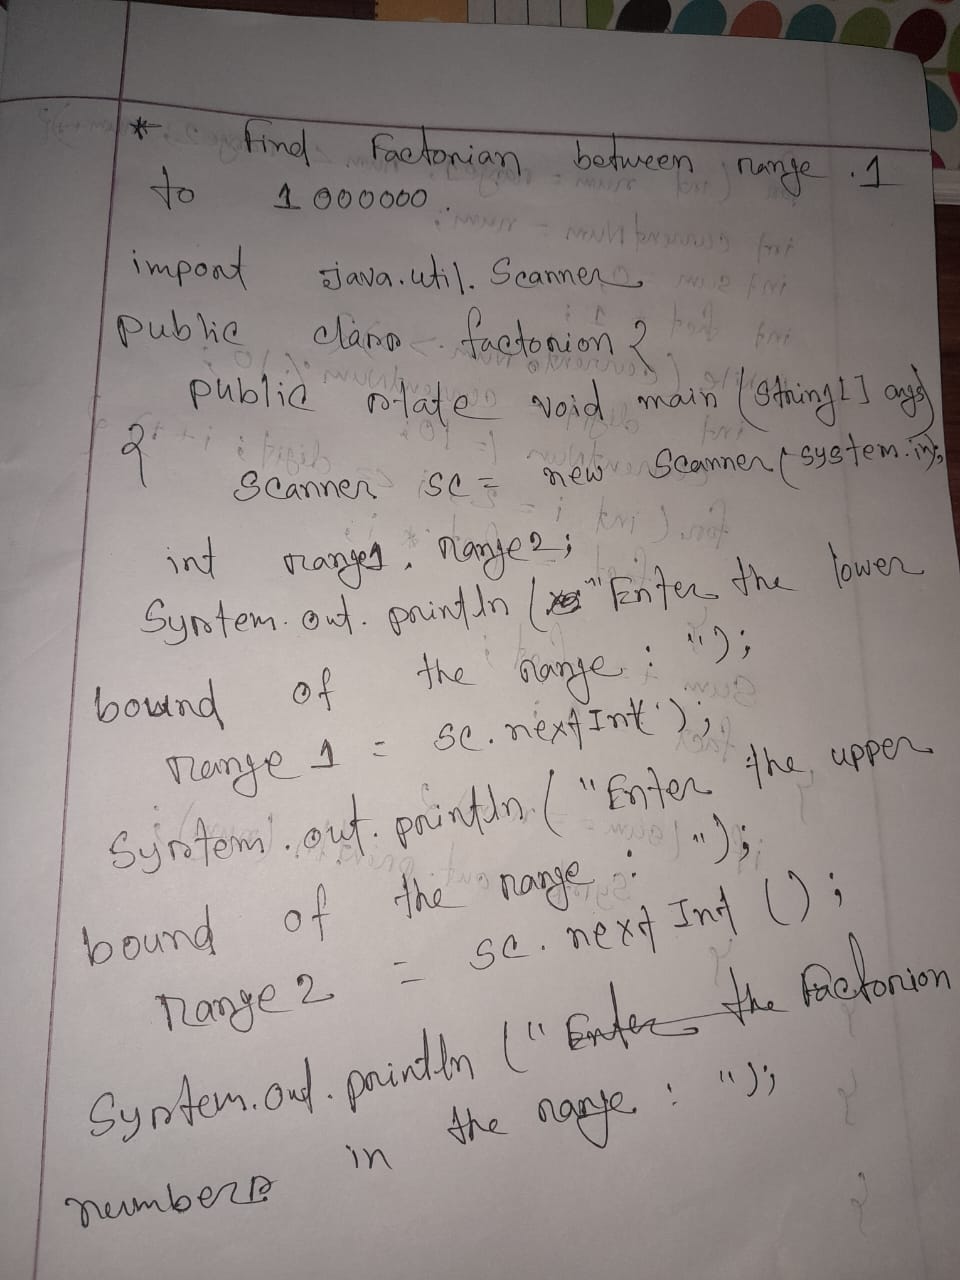 * Find Factorian between range . 1
to 1000000.
import java.util.Scanner
public class factorion {
public state void main (String[] args)
{
Scanner sc = new Scanner (system.in);
int range1, range2;
System.out.println ("Enter the lower
bound of the range : ");
range 1 = sc.nextInt );
System.out.println ("Enter the upper
bound of the range : ");
range 2 = sc.next Int ();
System.out.println ("Enter the factorion
numbers in the range : ");